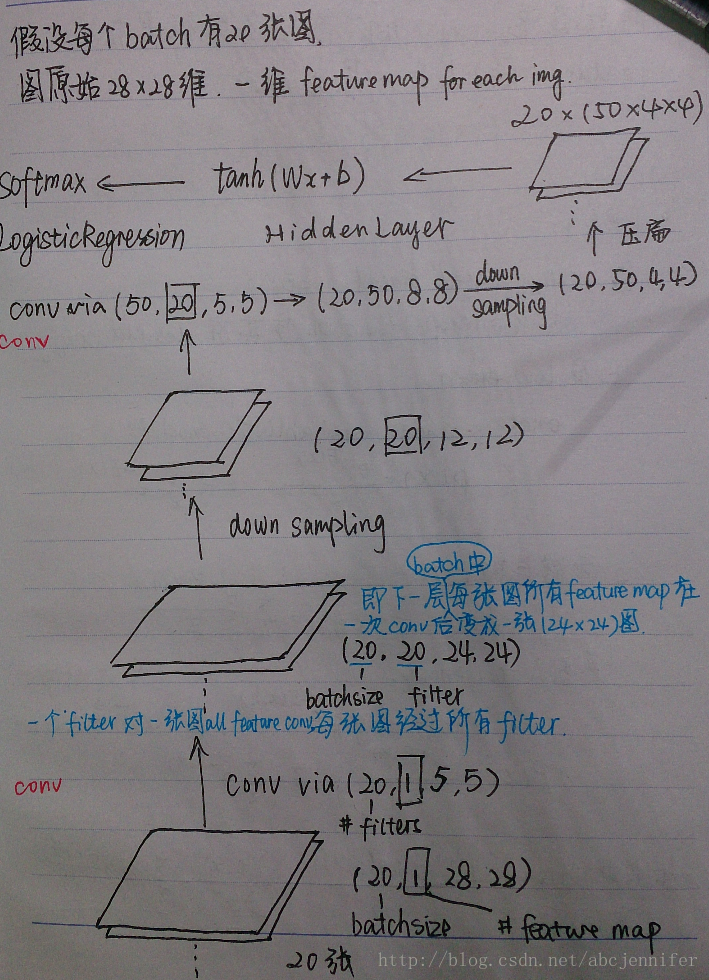 假设每个batch有20张图.
图原始28×28维. 一维 feature map for each img.
20×(50×4×4)
softmax ← tanh(Wx+b) ←
LogisticRegression HiddenLayer 个 压扁
conv via (50, 20, 5, 5) → (20, 50, 8, 8) down sampling → (20, 50, 4, 4)
conv
(20, 20, 12, 12)
down sampling
batch中
即下一层每张图所有feature map在
一次conv后变成一张(24×24)图.
(20, 20, 24, 24)
batchsize filter
一个filter对一张图all feature conv. 每张图经过所有filter.
conv
conv via (20, 1, 5, 5)
# filters
(20, 1, 28, 28)
batchsize # feature map
20张
http://blog.csdn.net/abcjennifer